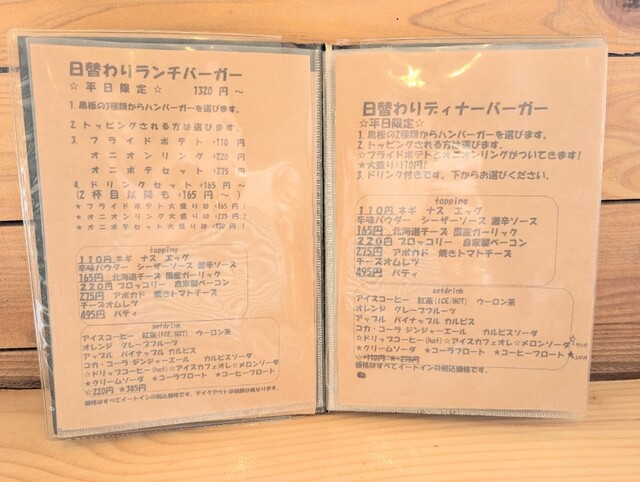 日替わりランチバーガー
☆平日限定☆ 1320円〜
1.黒板の3種類からハンバーガーを選びます。
2.トッピングされる方は選びます。
3.フライドポテト +110円
オニオンリング +220円
オニポテセット +275円
4.ドリンクセット +165円〜
(2杯目以降も +165円〜)
★フライドポテト大盛りは
★オニオンリング大盛りは
★オニポテセット大盛りは
topping
110円 ネギ ナス エッグ
辛味パウダー シーザーソース 激辛ソース
165円 北海道チーズ 国産ガーリック
220円 ブロッコリー 自家製ベーコン
275円 アボカド 焼きトマトチーズ
チーズオムレツ
495円 パティ
setdrink
アイスコーヒー 紅茶(ICE/HOT) ウーロン茶
オレンジ グレープフルーツ
アップル パイナップル カルピス
コカ・コーラ ジンジャーエール カルピスソーダ
☆ドリップコーヒー(hot)☆アイスカフェオレ☆メロンソーダ
★クリームソーダ ★コーラフロート ★コーヒーフロート
☆220円 ★385円
価格はすべてイートインの税込価格です。テイクアウトは価格が異なります。
日替わりディナーバーガー
☆平日限定☆
1.黒板の2種類からハンバーガーを選びます。
2.トッピングされる方は選びます。
☆フライドポテトとオニオンリングがついてきます!
★大盛り+110円!
3.ドリンク付きです。下からお選びください。
topping
110円 ネギ ナス エッグ
辛味パウダー シーザーソース 激辛ソース
165円 北海道チーズ 国産ガーリック
220円 ブロッコリー 自家製ベーコン
275円 アボカド 焼きトマトチーズ
チーズオムレツ
495円 パティ
setdrink
アイスコーヒー 紅茶(ICE/HOT) ウーロン茶
オレンジ グレープフルーツ
アップル パイナップル カルピス
コカ・コーラ ジンジャーエール カルピスソーダ
☆ドリップコーヒー(hot)☆アイスカフェオレ☆メロンソーダ
★クリームソーダ ★コーラフロート ★コーヒーフロート
☆+110円 ★+275円
価格はすべてイートインの税込価格です。